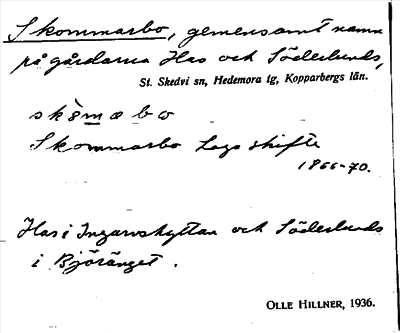 Skommarbo, gemensamt namn
på gårdarna Has och Söderlunds,
St. Skedvi sn, Hedemora tg, Kopparbergs län.
Skommarbo Laga skifte
1866-70.
Has i Ingarvshyttan och Söderlunds
i Björänget.
OLLE HILLNER, 1936.